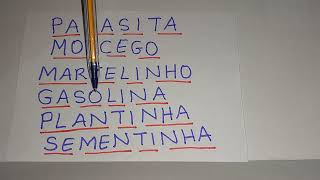 PARASITA
MORCEGO
MARTELINHO
GASOLINA
PLANTINHA
SEMENTINHA